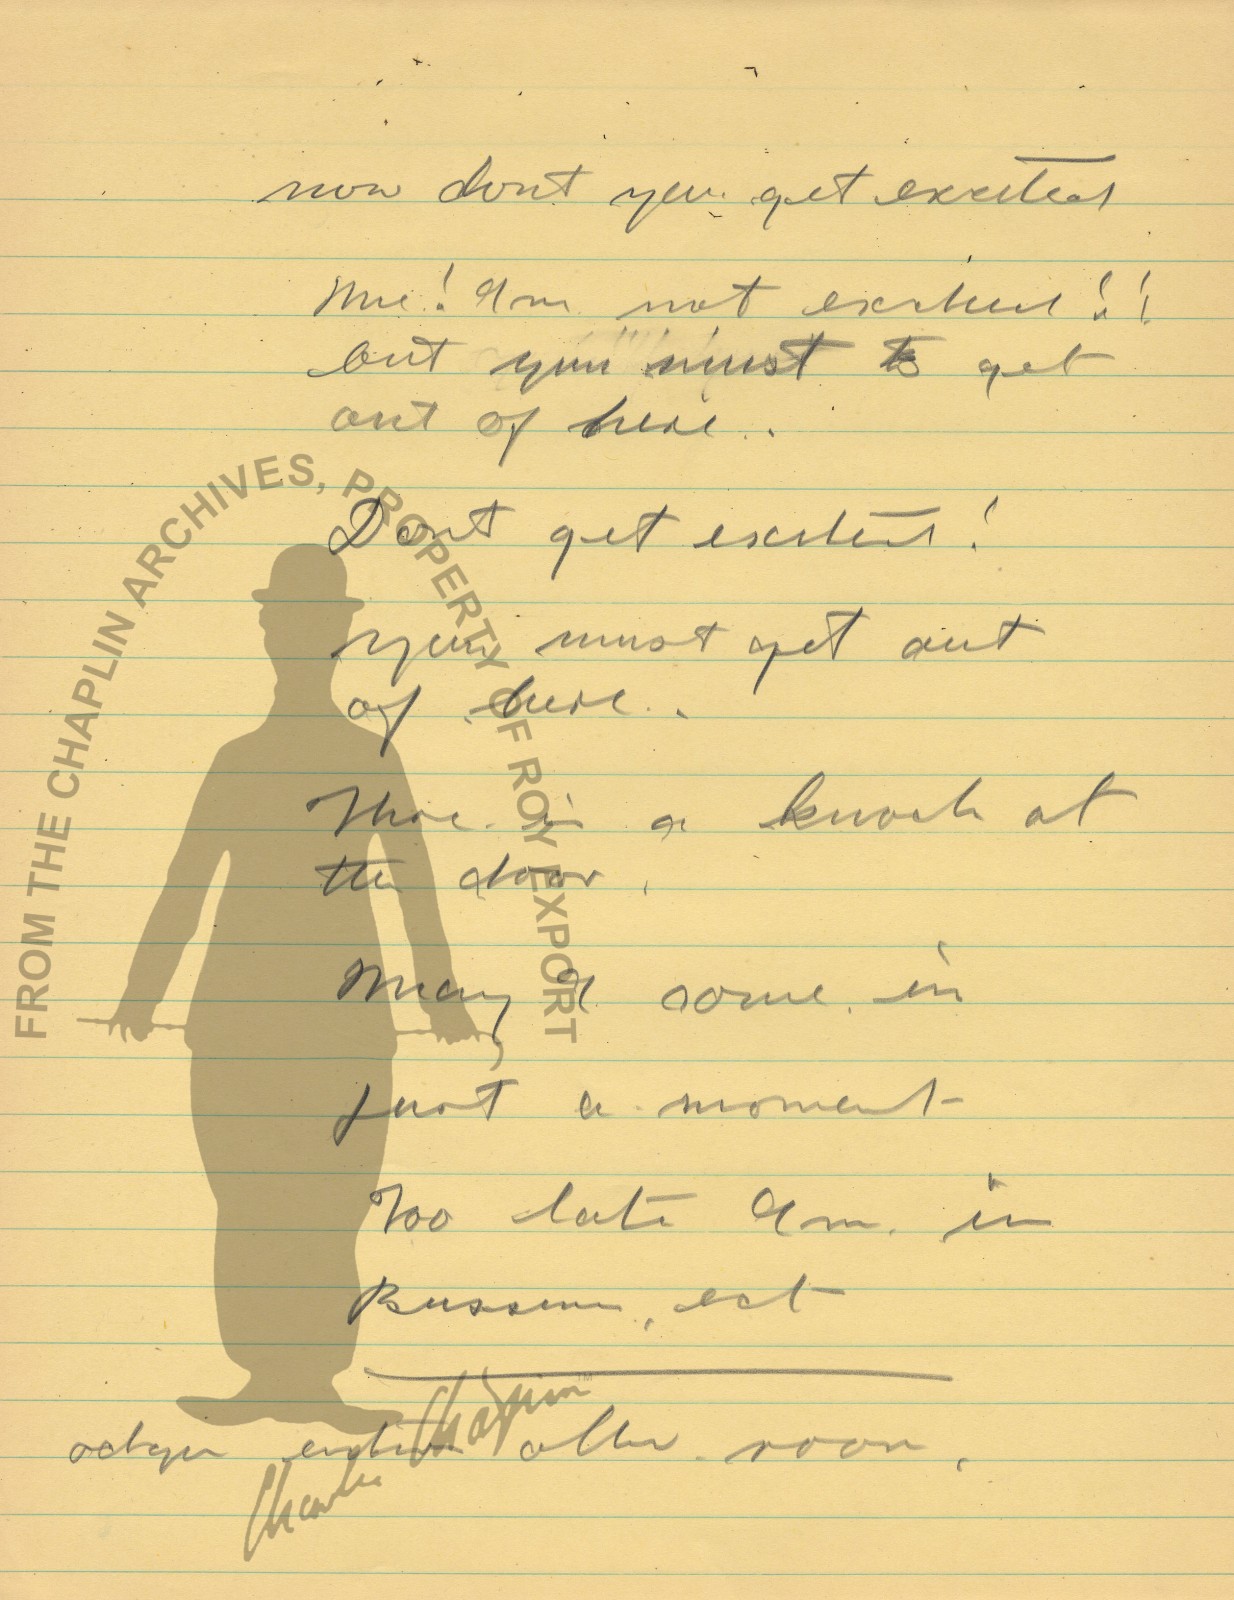 now dont you get excited
Me! I'm not excited!!
but you must to get
out of here.
Dont get excited!
you must get out
of here.
There is a knock at
the door.
May I come in
just a moment
Too late I'm in
ect
other room.
FROM THE CHAPLIN ARCHIVES, PROPERTY OF ROY EXPORT
Charlie Chaplin